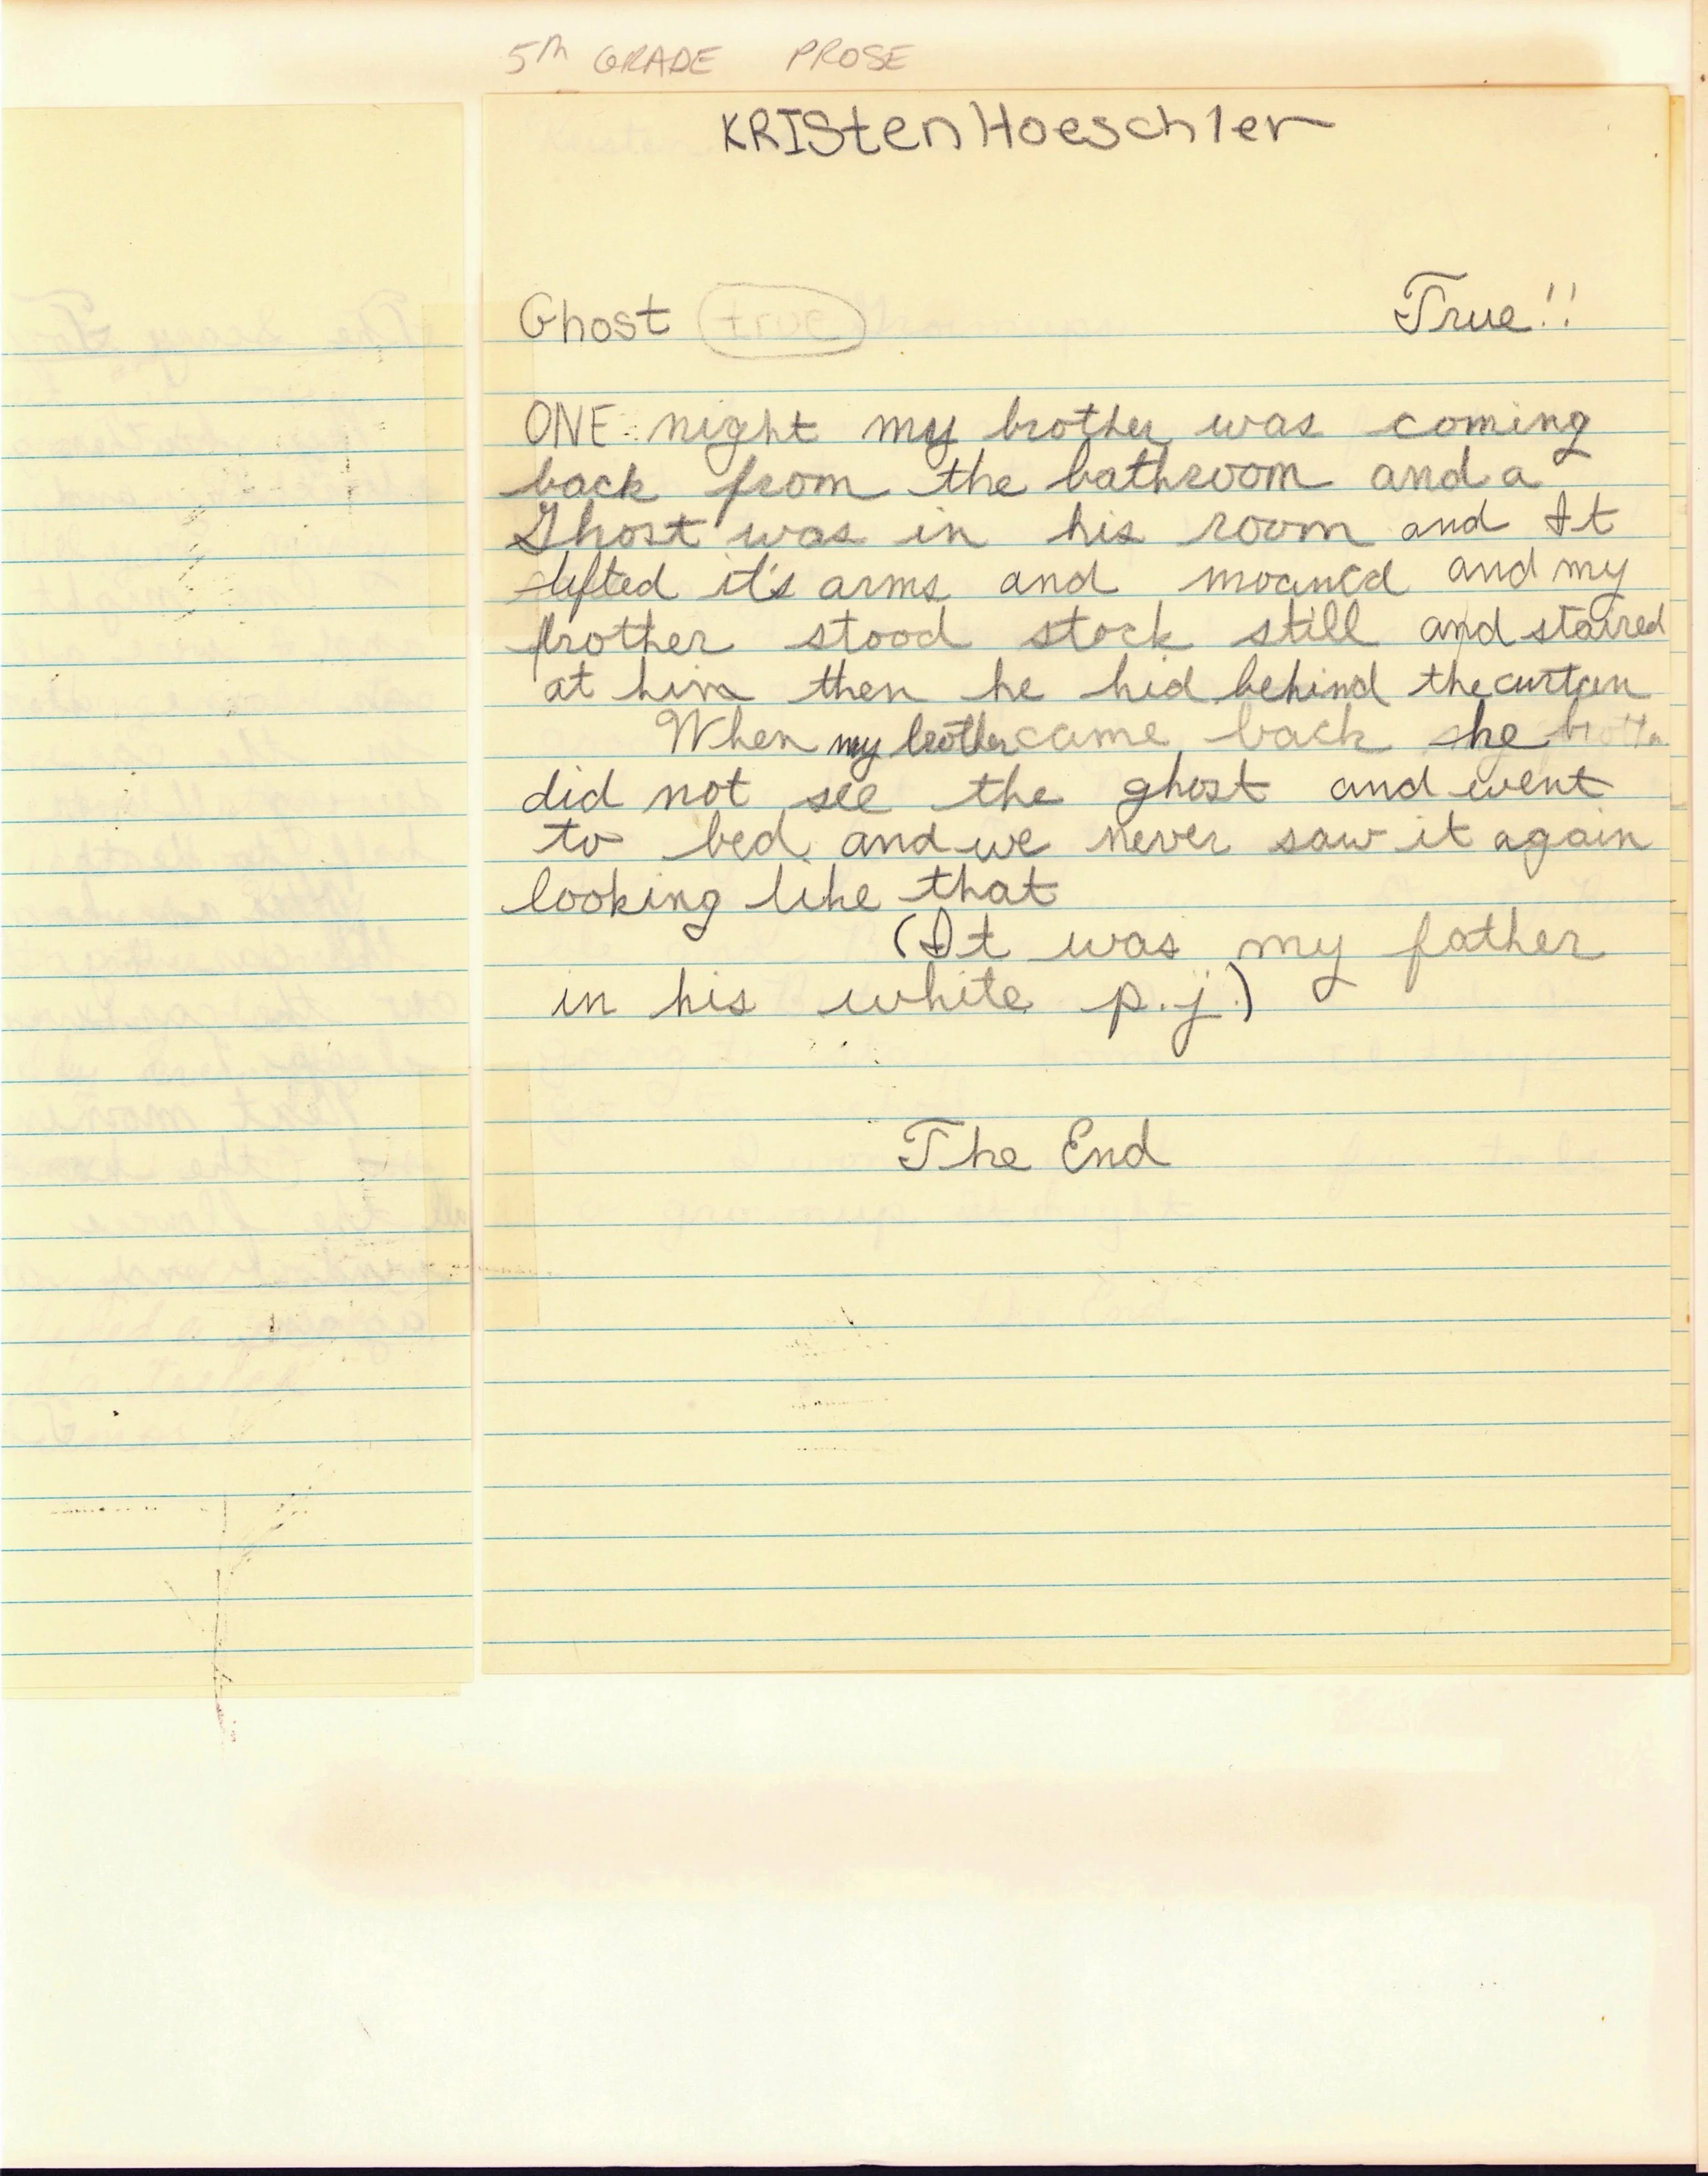 5th GRADE PROSE
KRISten Hoeschler
Ghost true True!!
ONE night my brother was coming
back from the bathroom and a
Ghost was in his room and It
lifted it's arms and moaned and my
brother stood stock still and staired
at him then he hid behind the curtain
When my brother came back he
did not see the ghost and went
to bed and we never saw it again
looking like that
(It was my father
in his white p.j.)
The End